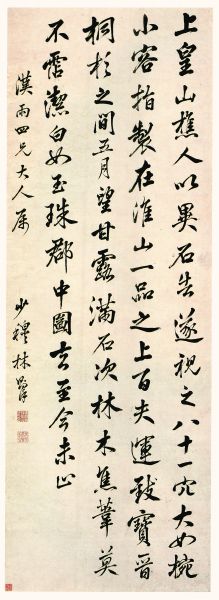 上皇山樵人以異石告遂視之八十一穴大如椀
小容指製在淮山一品之上百夫運致寶晉
桐杉之間五月望甘露滿石次林木焦葦莫
不霑潔白如玉珠郡中圖去至今未止
漢雨四兄大人属
少穆林則徐